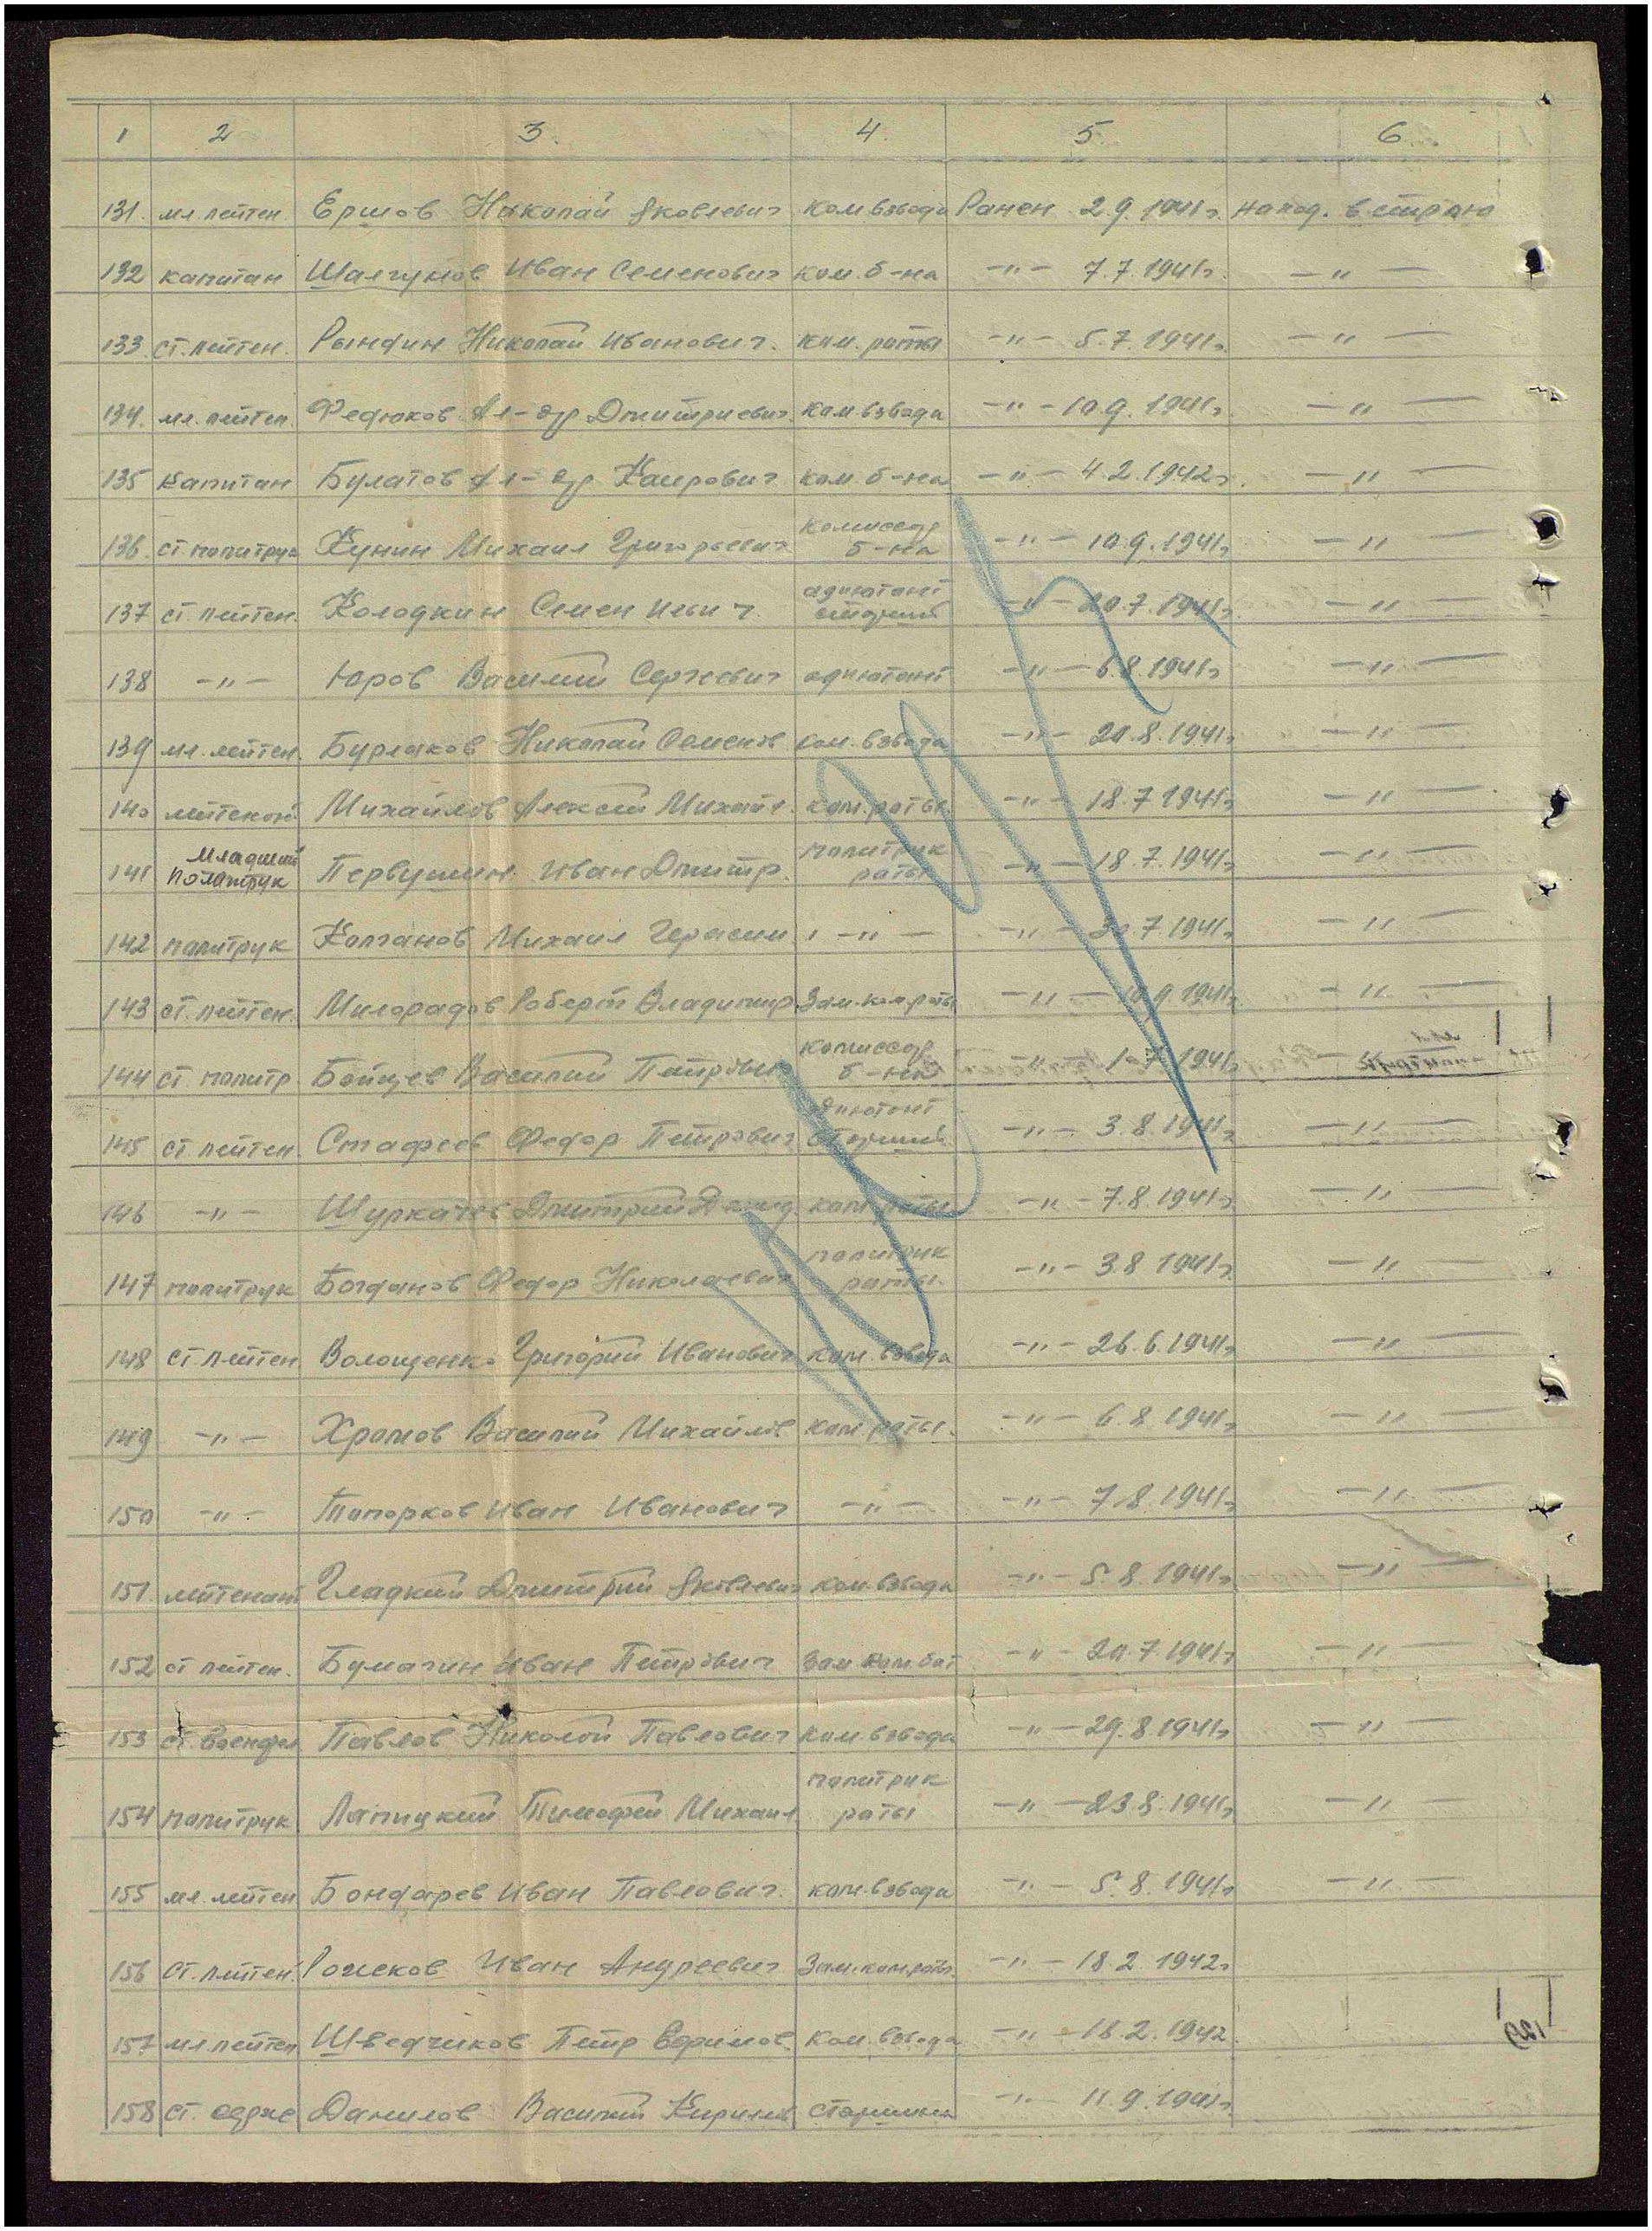 1 2 3. 4. 5. 6.
131. мл лейтен Ершов Николай Яковлевич ком взвода Ранен 2.9.1941г. наход. в строю
132 капитан Шалгунов Иван Семенович ком. б-на -"- 7.7.1941г. -"-
133 ст. лейтен. Рындин Николай Иванович. ком. роты -"- 5.7.1941г. -"-
134. мл. лейтен. Федюков Ал-др Дмитриевич ком взвода -"- 10 9. 1941г. -"-
135 капитан Булатов Ал-др Каирович ком. б-на -"- 4.2.1942г. -"-
136. ст политрук Кунин Михаил Григорьевич комиссар б-на -"- 10.9.1941г -"-
137 ст. лейтен. Колодкин Семен Ильич. адьютант старший -"- 20.7.1941г -"-
138 -"- Юров Василий Сергеевич адьютант -"- 6.8.1941г -"-
139 мл. лейтен. Бурлаков Николай Семенов ком. взвода -"- 20.8.1941г -"-
140 лейтенант Михайлов Алексей Михайл. ком. роты -"- 18.7 1941г -"-
141 Младший политрук Первушин Иван Дмитр. политрук роты -"- 18.7.1941г -"-
142 политрук Колганов Михаил Герасим. -"- -"- 30.7.1941г -"-
143 ст. лейтен. Милорадов Роберт Владимир. Зам. ком роты -"- 10 9 1941г. -"-
144 ст. политр. Бойцев Василий Петрович комиссар б-на -"- 1-7 1941г -"-
145 ст лейтен. Стафеев Федор Петрович адьютант старший -"- 3.8.1941г -"-
146 -"- Шуркачев Дмитрий ком. роты -"- 7.8.1941г -"-
147 политрук Богданов Федор Николаевич политрук роты. -"- 3.8 1941г -"-
148 ст. лейтен Волощенко Григорий Иванович ком. взвода -"- 26.6.1941г -"-
149 -"- Хромов Василий Михайлов ком. роты. -"- 6.8.1941г -"-
150 -"- Топорков Иван Иванович -"- -"- 7.8.1941г -"-
151. лейтенант Гладкий Дмитрий Яковлевич ком. взвода -"- 5.8 1941г -"-
152 ст лейтен. Бумагин Иван Петрович Зам ком бат -"- 20.7 1941г -"-
153 ст. Павлов Николай Павлович ком. взвода -"- 29.8.1941г -"-
154 политрук Лапицкий Тимофей Михаил политрук роты -"- 23.8.1941г -"-
155 мл. лейтен Бондарев Иван Павлович. ком. взвода -"- 5.8.1941г -"-
156 ст. лейтен. Рожков Иван Андреевич Зам. ком. роты. -"- 18.2.1942г
157 мл. лейтен Шведчиков Петр Ефимов. ком. взвода -"- 18.2.1942.
158 ст. Данилов Василий Кирилов старшина -"- 11.9.1941г.
129